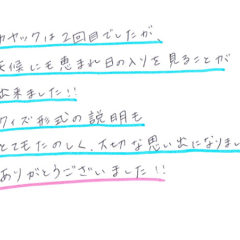 カヤックは2回目でしたが、
天候にも恵まれ日の入りを見ることが
出来ました!!
クイズ形式の説明も
とてもたのしく、大切な思い出になりまし
ありがとうございました!!